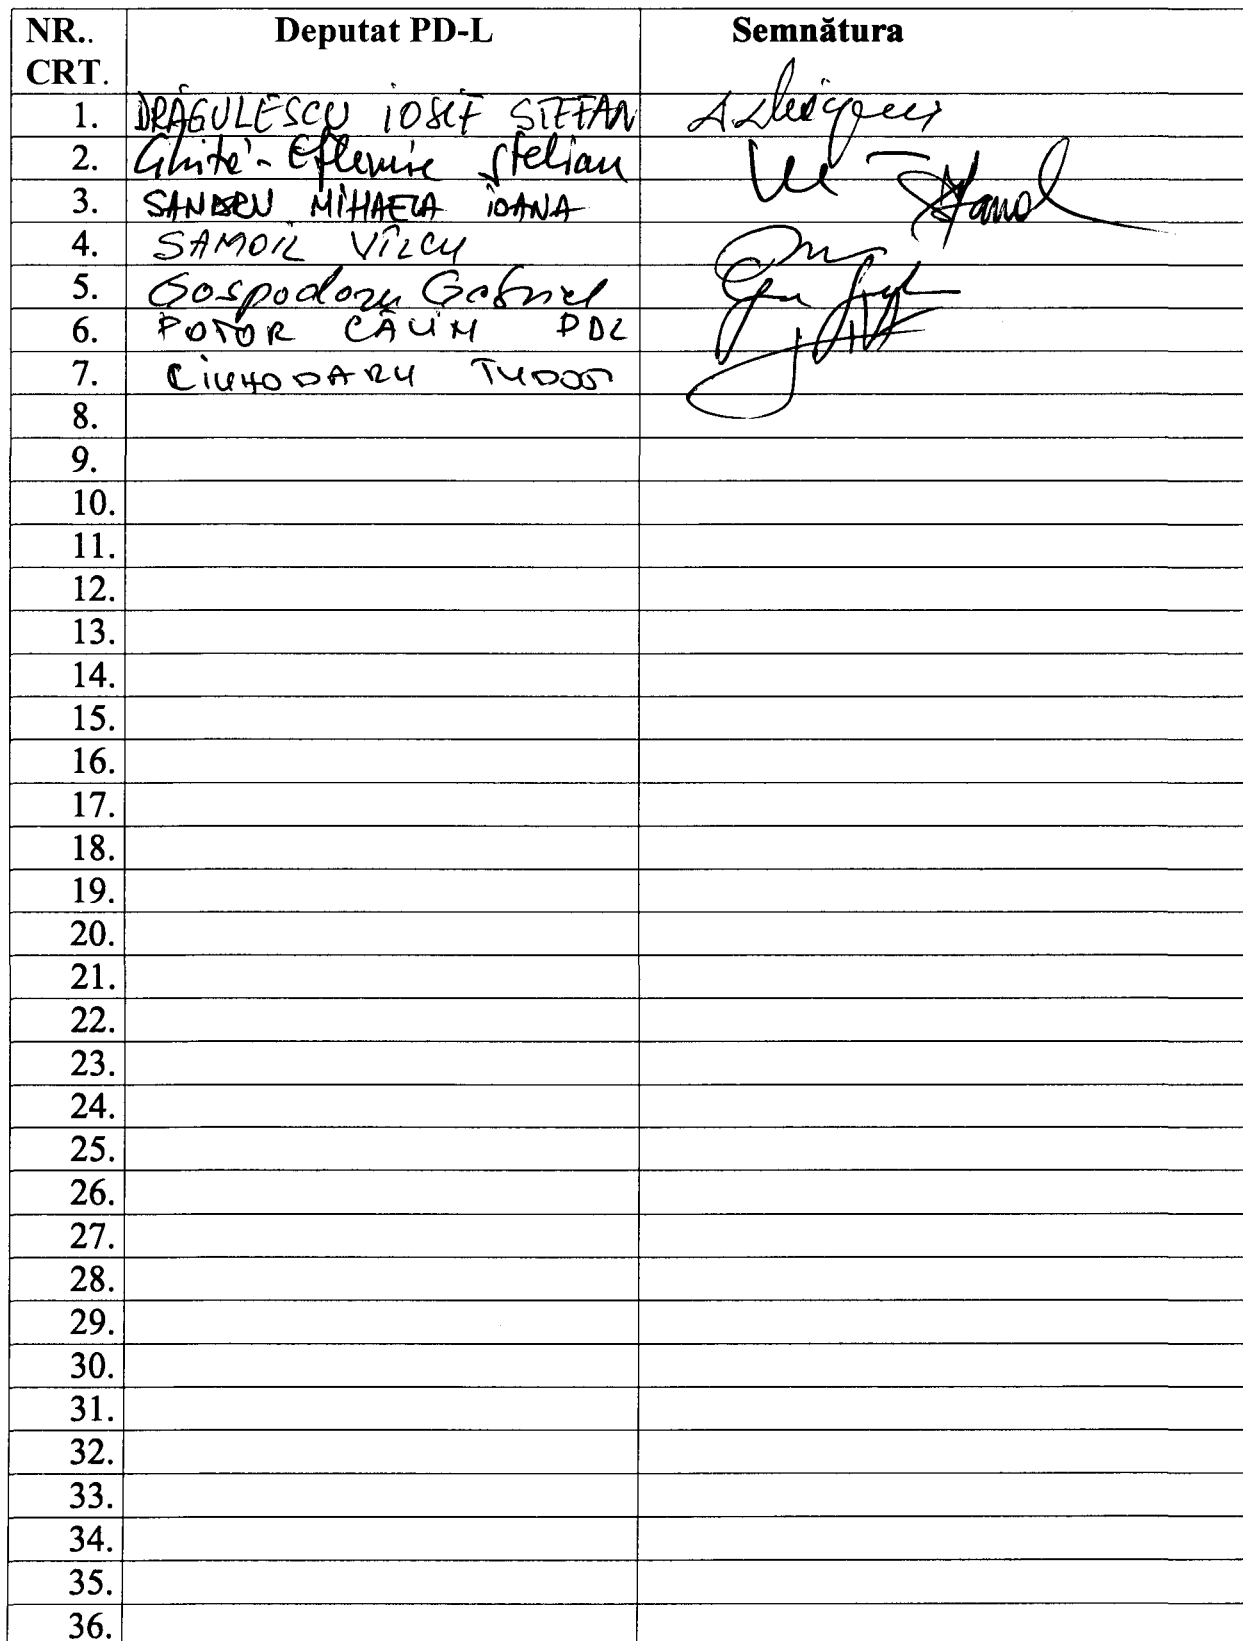 NR.. Deputat PD-L Semnătura
CRT.
1. DRĂGULESCU IOSIF STEFAN
2. Ghiță-Eftemie Stelian
3. SANDRU MIHAELA IOANA
4. SAMOIL VÎLCU
5. Gospodaru Gabriel
6. POTOR CĂLIN PDL
7. CIUHODARU TUDOR
8.
9.
10.
11.
12.
13.
14.
15.
16.
17.
18.
19.
20.
21.
22.
23.
24.
25.
26.
27.
28.
29.
30.
31.
32.
33.
34.
35.
36.